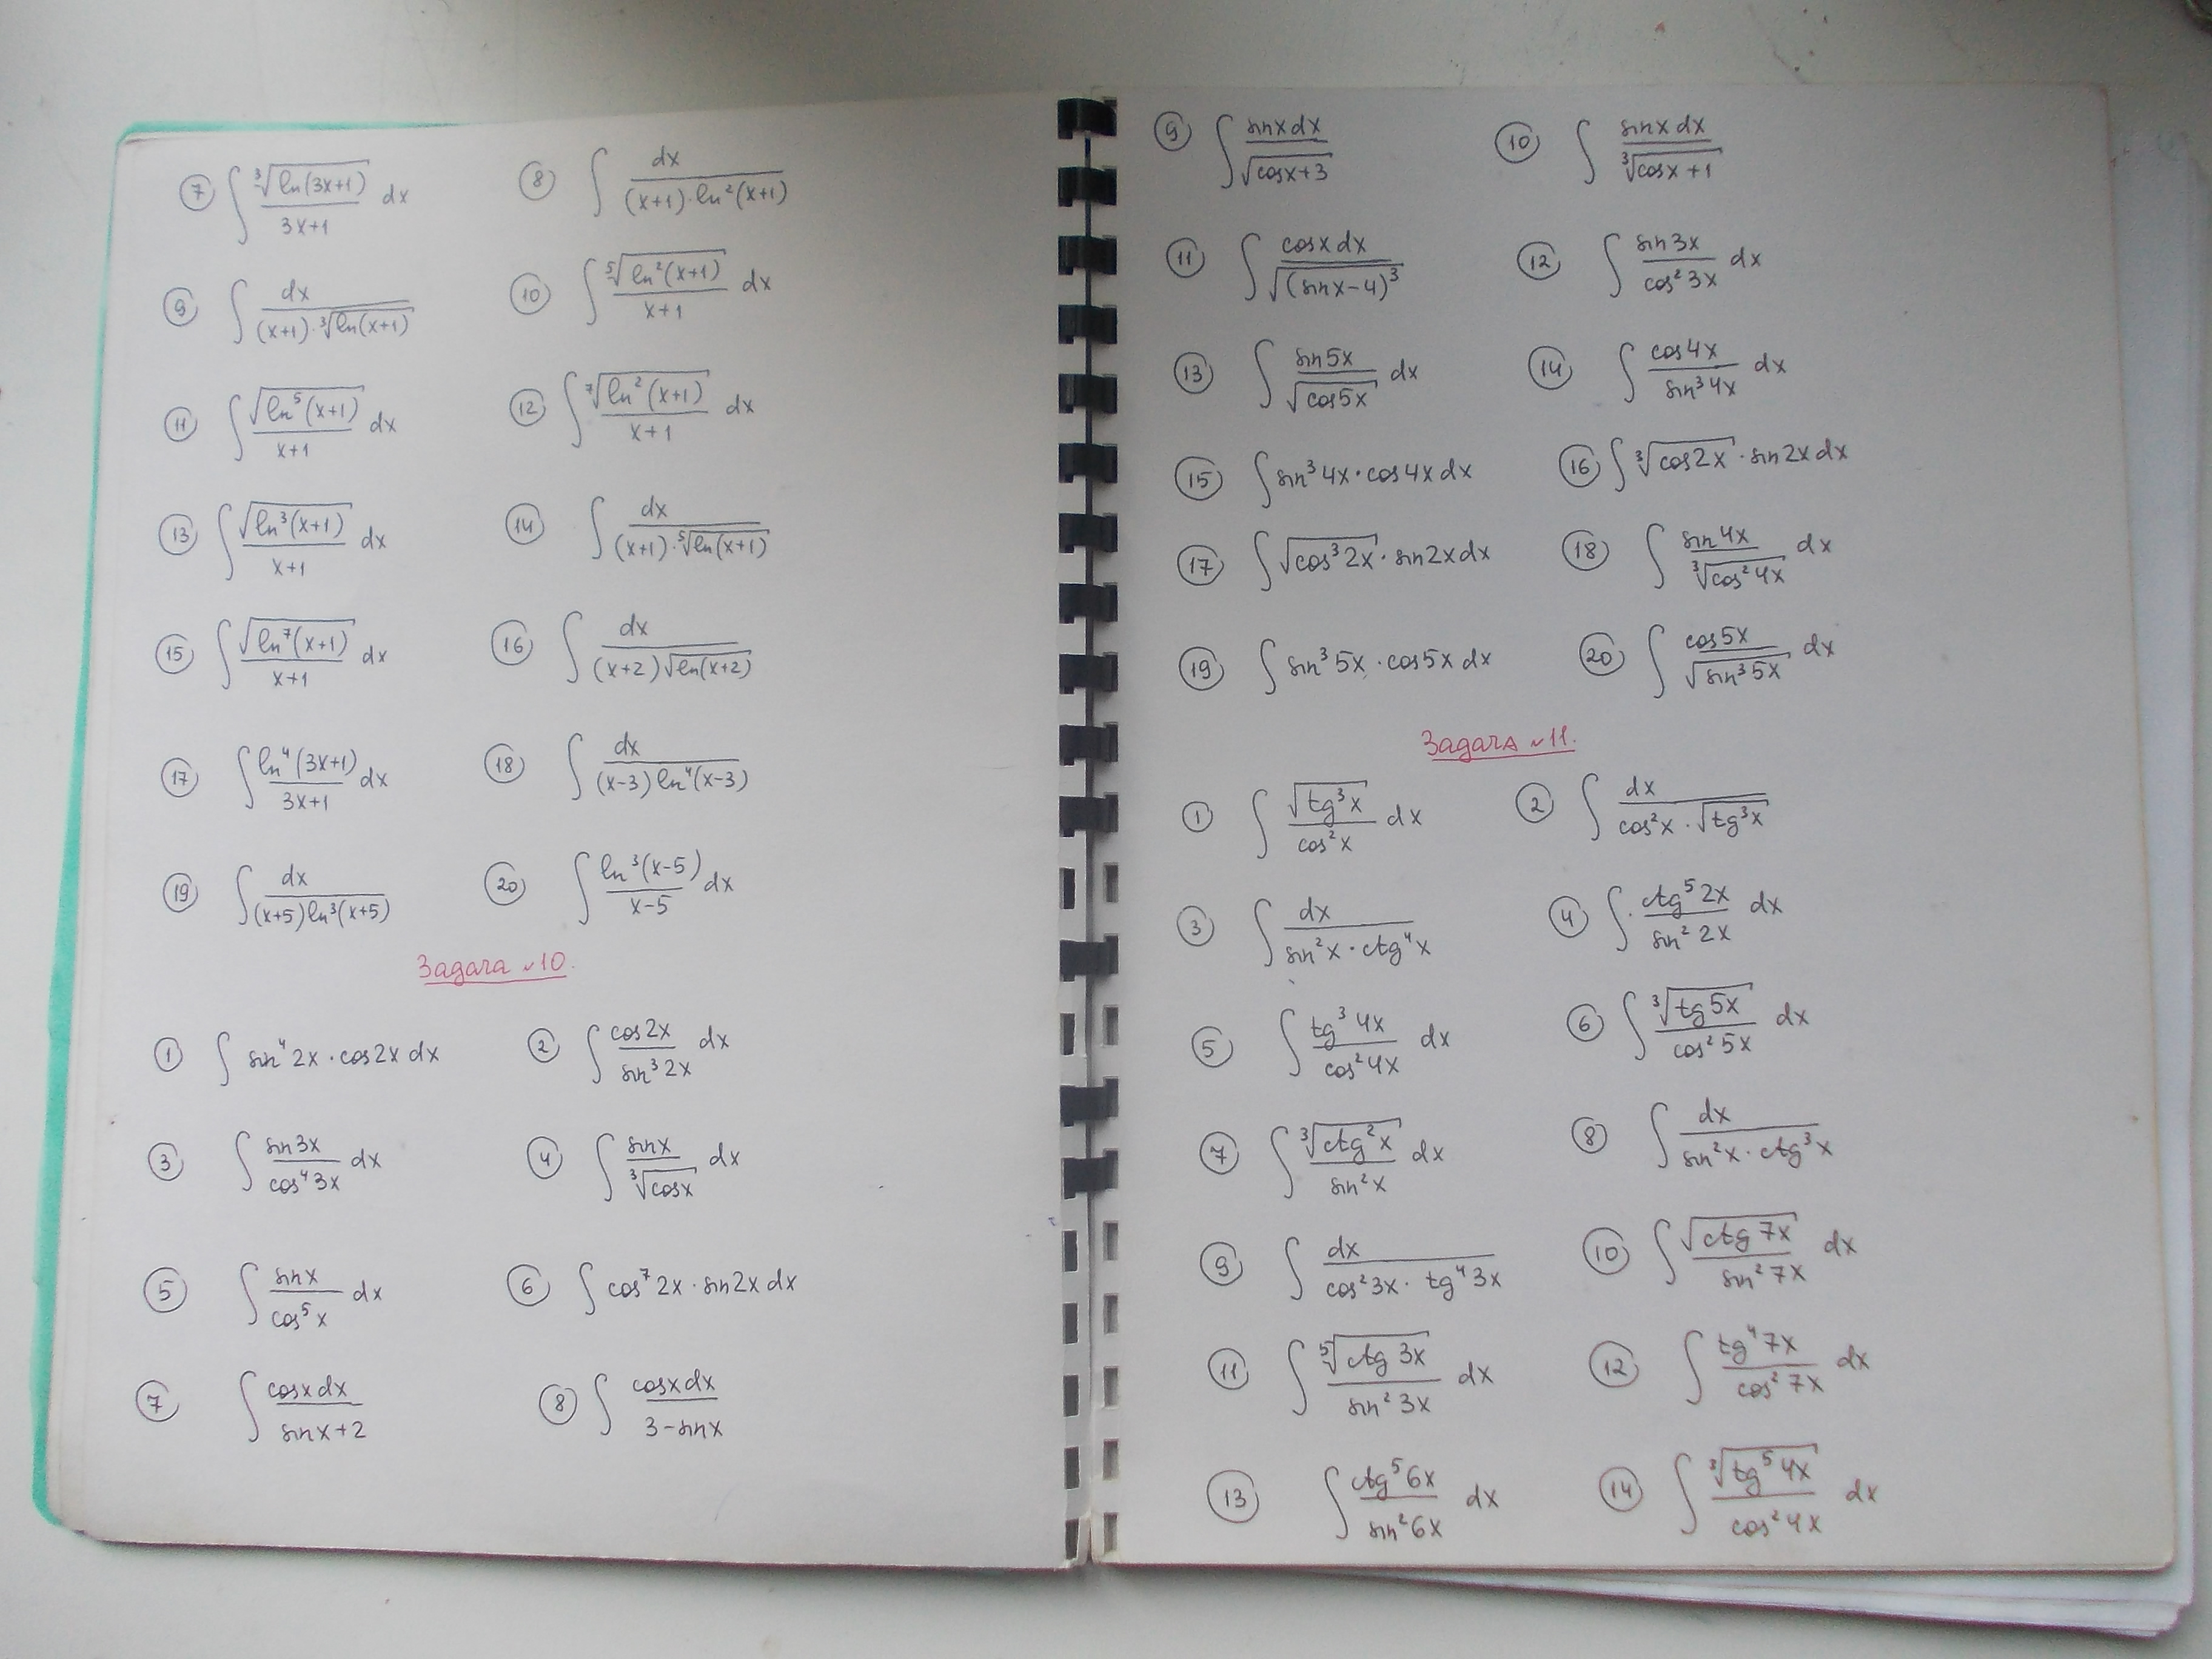 ⑦ ∫ ∛(ln(3x+1)) / (3x+1) dx ⑧ ∫ dx / ((x+1)·ln²(x+1))
⑨ ∫ dx / ((x+1)·∛(ln(x+1))) ⑩ ∫ ⁵√(ln²(x+1)) / (x+1) dx
⑪ ∫ √(ln⁵(x+1)) / (x+1) dx ⑫ ∫ ⁷√(ln²(x+1)) / (x+1) dx
⑬ ∫ √(ln³(x+1)) / (x+1) dx ⑭ ∫ dx / ((x+1)·⁵√(ln(x+1)))
⑮ ∫ √(ln⁷(x+1)) / (x+1) dx ⑯ ∫ dx / ((x+2)√(ln(x+2)))
⑰ ∫ ln⁴(3x+1) / (3x+1) dx ⑱ ∫ dx / ((x-3)ln⁴(x-3))
⑲ ∫ dx / ((x+5)ln³(x+5)) ⑳ ∫ ln³(x-5) / (x-5) dx
Задача №10.
① ∫ sin⁴2x·cos2x dx ② ∫ cos2x / sin³2x dx
③ ∫ sin3x / cos⁴3x dx ④ ∫ sinx / ∛(cosx) dx
⑤ ∫ sinx / cos⁵x dx ⑥ ∫ cos⁷2x·sin2x dx
⑦ ∫ cosx dx / (sinx+2) ⑧ ∫ cosx dx / (3-sinx)
⑨ ∫ sinx dx / √(cosx+3) ⑩ ∫ sinx dx / ∛(cosx+1)
⑪ ∫ cosx dx / √((sinx-4)³) ⑫ ∫ sin3x / cos²3x dx
⑬ ∫ sin5x / √(cos5x) dx ⑭ ∫ cos4x / sin³4x dx
⑮ ∫ sin³4x·cos4x dx ⑯ ∫ ∛(cos2x)·sin2x dx
⑰ ∫ √(cos³2x)·sin2x dx ⑱ ∫ sin4x / ∛(cos²4x) dx
⑲ ∫ sin³5x·cos5x dx ⑳ ∫ cos5x / √(sin³5x) dx
Задача №11.
① ∫ √(tg³x) / cos²x dx ② ∫ dx / (cos²x·√(tg³x))
③ ∫ dx / (sin²x·ctg⁴x) ④ ∫ ctg⁵2x / sin²2x dx
⑤ ∫ tg³4x / cos²4x dx ⑥ ∫ ∛(tg5x) / cos²5x dx
⑦ ∫ ∛(ctg²x) / sin²x dx ⑧ ∫ dx / (sin²x·ctg³x)
⑨ ∫ dx / (cos²3x·tg⁴3x) ⑩ ∫ √(ctg7x) / sin²7x dx
⑪ ∫ ⁵√(ctg3x) / sin²3x dx ⑫ ∫ tg⁴7x / cos²7x dx
⑬ ∫ ctg⁵6x / sin²6x dx ⑭ ∫ ∛(tg⁵4x) / cos²4x dx